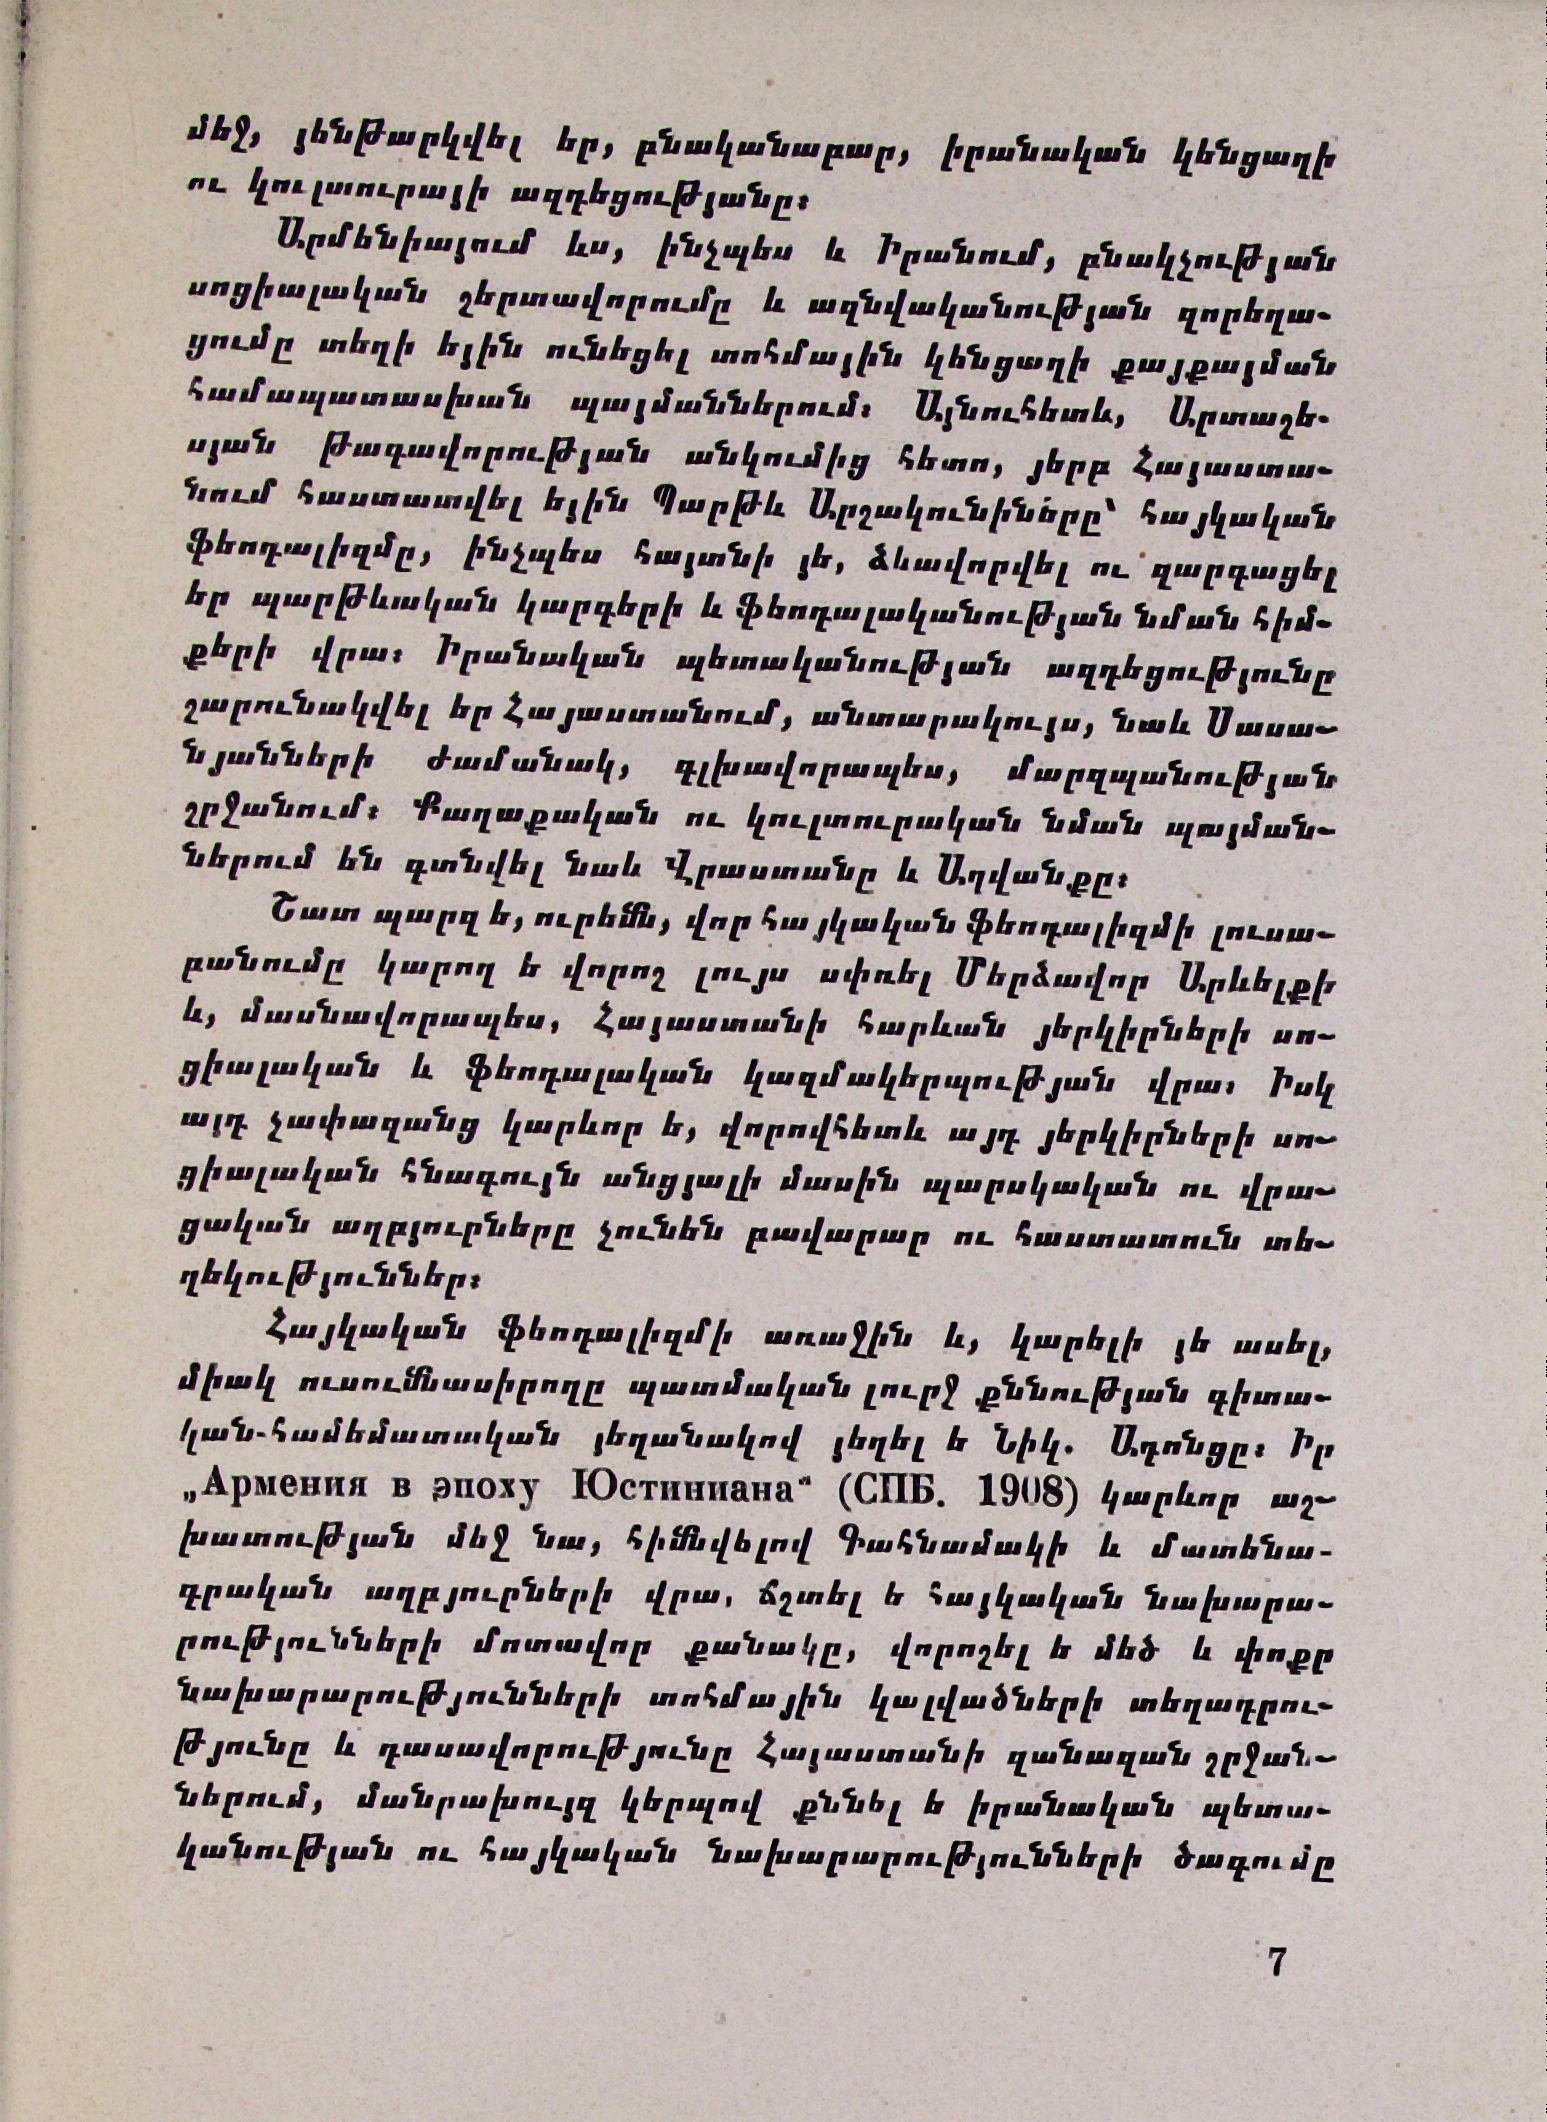 մեջ, յենթարկվել եր, բնականաբար, իրանական կենցաղի
ու կուլտուրայի ազդեցությանը։
Արմենիայում ևս, ինչպես և Իրանում, բնակչության
սոցիալական շերտավորումը և ազնվականության զորեղա-
ցումը տեղի եյին ունեցել տոհմային կենցաղի քայքայման
համապատասխան պայմաններում։ Այնուհետև, Արտաշե-
սյան թագավորության անկումից հետո, յերբ Հայաստա-
նում հաստատվել եյին Պարթև Արշակունիները՝ հայկական
ֆեոդալիզմը, ինչպես հայտնի յե, ձևավորվել ու զարգացել
եր պարթևական կարգերի և ֆեոդալականության նման հիմ-
քերի վրա։ Իրանական պետականության ազդեցությունը
շարունակվել եր Հայաստանում, անտարակույս, նաև Սասա-
նյանների ժամանակ, գլխավորապես, մարզպանության
շրջանում։ Քաղաքական ու կուլտուրական նման պայման-
ներում են գտնվել նաև Վրաստանը և Աղվանքը։
Շատ պարզ ե, ուրեմն, վոր հայկական ֆեոդալիզմի լուսա-
բանումը կարող ե վորոշ լույս սփռել Մերձավոր Արևելքի
և, մասնավորապես, Հայաստանի հարևան յերկիրների սո-
ցիալական և ֆեոդալական կազմակերպության վրա։ Իսկ
այդ չափազանց կարևոր ե, վորովհետև այդ յերկիրների սո-
ցիալական հնագույն անցյալի մասին պարսկական ու վրա-
ցական աղբյուրները չունեն բավարար ու հաստատուն տե-
ղեկություններ։
Հայկական ֆեոդալիզմի առաջին և, կարելի յե ասել,
միակ ուսումնասիրողը պատմական լուրջ քննության գիտա-
կան-համեմատական յեղանակով յեղել ե Նիկ. Ադոնցը։ Իր
„Армения в эпоху Юстиниана“ (СПБ. 1908) կարևոր աշ-
խատության մեջ նա, հիմնվելով Գահնամակի և մատենա-
գրական աղբյուրների վրա, ճշտել ե հայկական նախարա-
րությունների մոտավոր քանակը, վորոշել ե մեծ և փոքր
նախարարությունների տոհմային կալվածների տեղադրու-
թյունը և դասավորությունը Հայաստանի զանազան շրջան-
ներում, մանրախույզ կերպով քննել ե իրանական պետա-
կանության ու հայկական նախարարությունների ծագումը
7